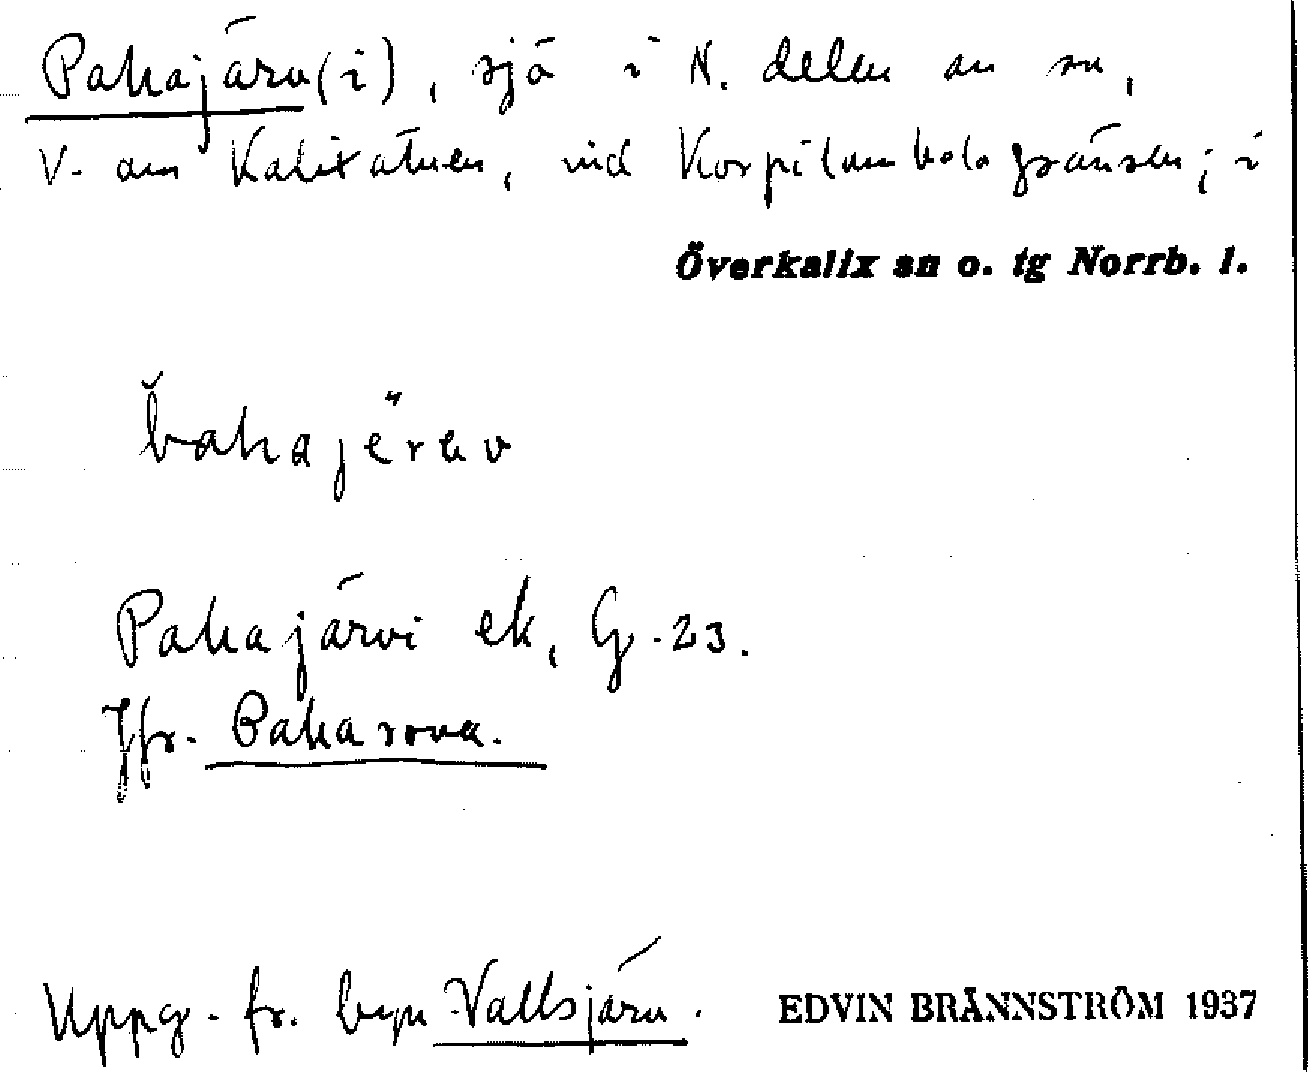 Pahajärv(i), sjö i N. delen av sn,
V. om Kalixälven, vid Korpilombologränsen; i
Överkalix sn o. tg Norrb. l.
b̌ahajërev
Pahajärvi ek, G-23.
Jfr. Paharova.
Uppg. fr. byn Vallsjärv.
EDVIN BRÄNNSTRÖM 1937